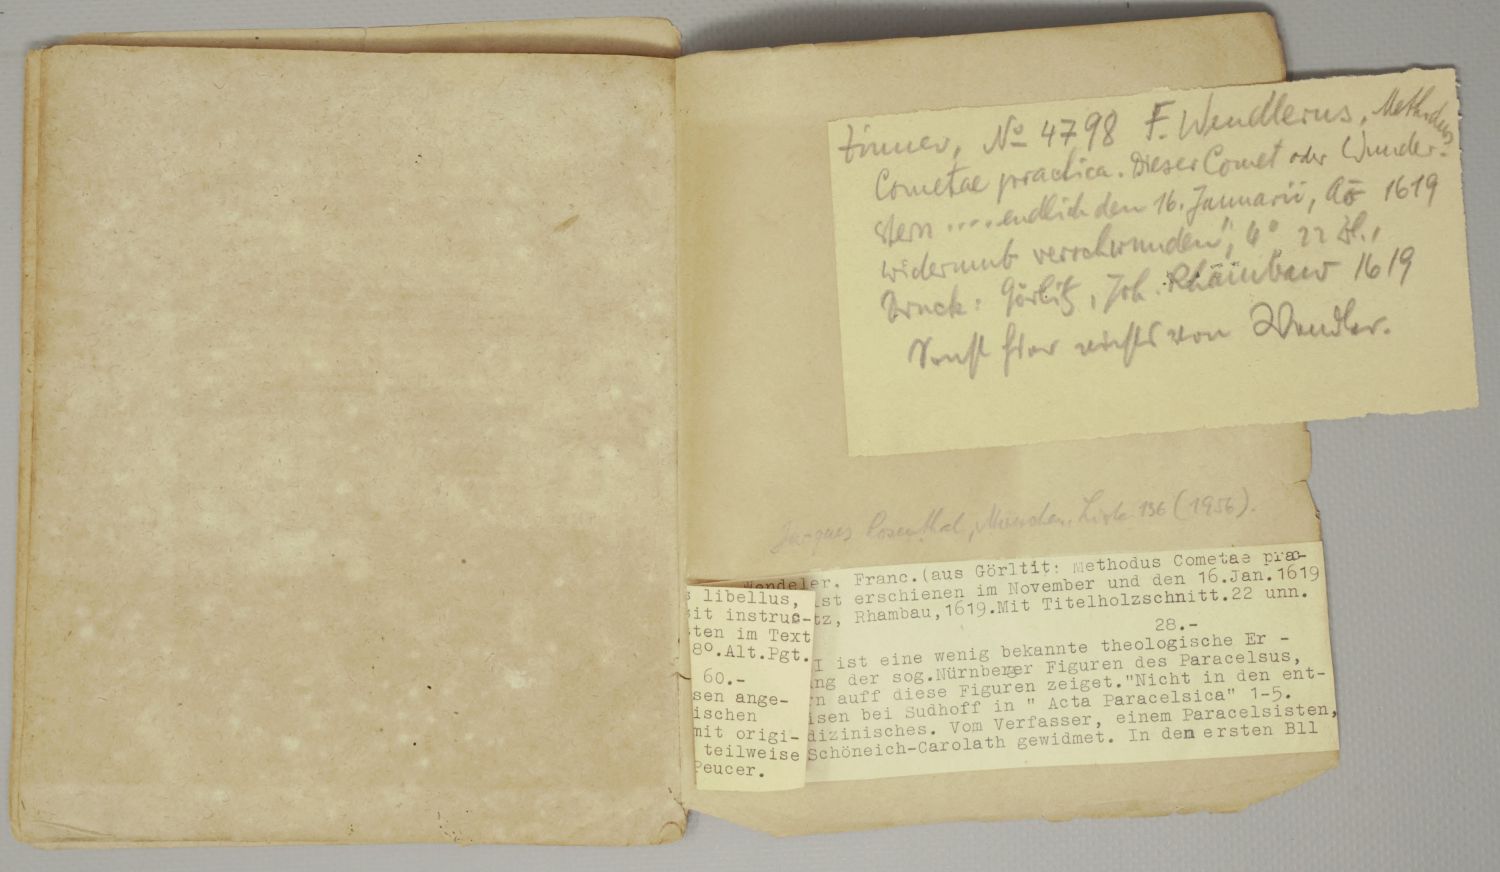 Zinner, No 4798 F. Wendlerus, Methodus
Cometae practica. Dieser Comet oder Wunder-
stern .... endlich den 16. Januarii, Ao 1619
widerumb verschwunden", 4° 22 Bl.,
Druck: Görlitz, Joh. Rhambaw 1619
Sonst hier nichts von Wendler.
Jacques Rosenthal, München, Liste 136 (1956).
Wendeler. Franc.(aus Görltit: Methodus Cometae prac-
ist erschienen im November und den 16.Jan.1619
tz, Rhambau,1619.Mit Titelholzschnitt.22 unn.
28.-
I ist eine wenig bekannte theologische Er -
ng der sog.Nürnberger Figuren des Paracelsus,
rn auff diese Figuren zeiget."Nicht in den ent-
isen bei Sudhoff in " Acta Paracelsica" 1-5.
dizinisches. Vom Verfasser, einem Paracelsisten,
Schöneich-Carolath gewidmet. In den ersten Bll
s libellus,
sit instruc-
ten im Text
8°.Alt.Pgt.
60.-
sen ange-
ischen
mit origi-
teilweise
Peucer.